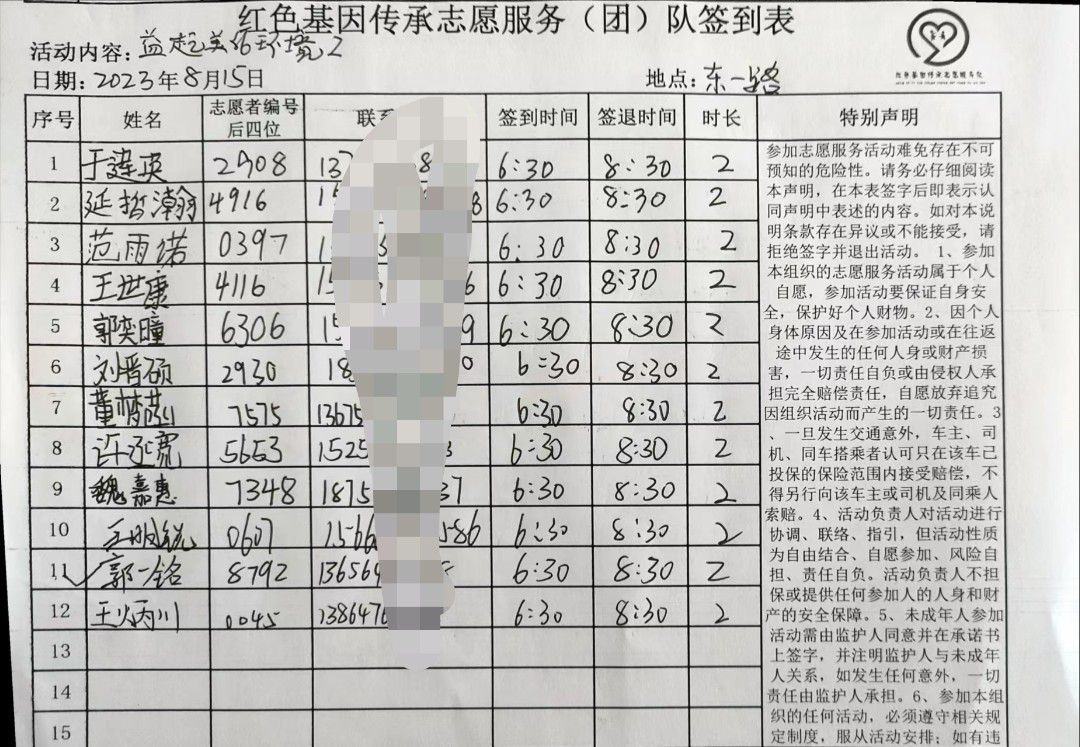 红色基因传承志愿服务（团）队签到表
活动内容：益起美化环境2
日期：2023年8月15日
地点：东一路
红色基因传承志愿服务队
序号 姓名 志愿者编号后四位 联系 签到时间 签退时间 时长 特别声明
1 于连英 2908 137 8 6:30 8:30 2
2 延哲瀚 4916 15 8 6:30 8:30 2
3 范雨诺 0397 1 6:30 8:30 2
4 王世康 4116 15 6 6:30 8:30 2
5 郭奕瞳 6306 15 9 6:30 8:30 2
6 刘晋硕 2930 18 0 6:30 8:30 2
7 董梦 7575 13675 6:30 8:30 2
8 许还宽 5653 1525 6:30 8:30 2
9 魏嘉惠 7348 1875 37 6:30 8:30 2
10 王明锐 0607 1566 586 6:30 8:30 2
11 郭一铭 8792 13656 6:30 8:30 2
12 王炳川 0045 1386476 6:30 8:30 2
13
14
15
参加志愿服务活动难免存在不可
预知的危险性。请务必仔细阅读
本声明，在本表签字后即表示认
同声明中表述的内容。如对本说
明条款存在异议或不能接受，请
拒绝签字并退出活动。 1、参加
本组织的志愿服务活动属于个人
自愿，参加活动要保证自身安
全，保护好个人财物。2、因个人
身体原因及在参加活动或在往返
途中发生的任何人身或财产损
害，一切责任自负或由侵权人承
担完全赔偿责任，自愿放弃追究
因组织活动而产生的一切责任。3
、一旦发生交通意外，车主、司
机、同车搭乘者认可只在该车已
投保的保险范围内接受赔偿，不
得另行向该车主或司机及同乘人
索赔。4、活动负责人对活动进行
协调、联络、指引，但活动性质
为自由结合、自愿参加、风险自
担、责任自负。活动负责人不担
保或提供任何参加人的人身和财
产的安全保障。5、未成年人参加
活动需由监护人同意并在承诺书
上签字，并注明监护人与未成年
人关系，如发生任何意外，一切
责任由监护人承担。6、参加本组
织的任何活动，必须遵守相关规
定制度，服从活动安排；如有违